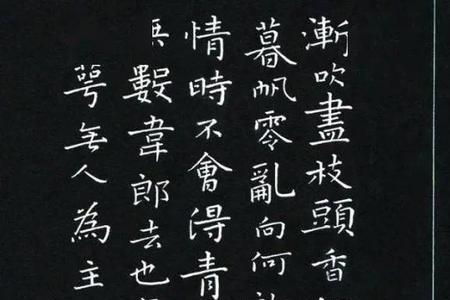 漸吹盡枝頭香
暮帆零亂向何
情時不會得青
數韋郎去也
萼無人為主